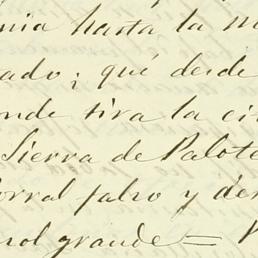 nia hasta la m
ado; qué desde
nde tira la ci
Sierra de Palote
orral falso y de
rol grande = V